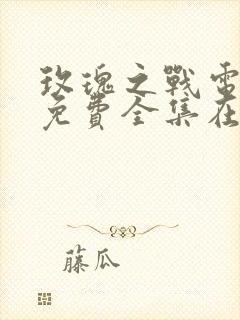 玫瑰之戰電
免費全集在
藤瓜